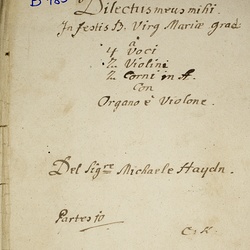 B 185
Dilectus meus mihi.
In festis B. Virg Mariæ grad
a
4 Voci
2 Violini
2 Corni in A.
Con
Organo è Violone.
Del Sigre Michaele Haydn.
Partes 10
C: K: